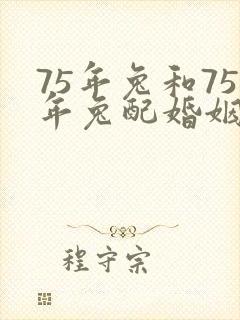 75年兔和75
年兔配婚姻
程守宗